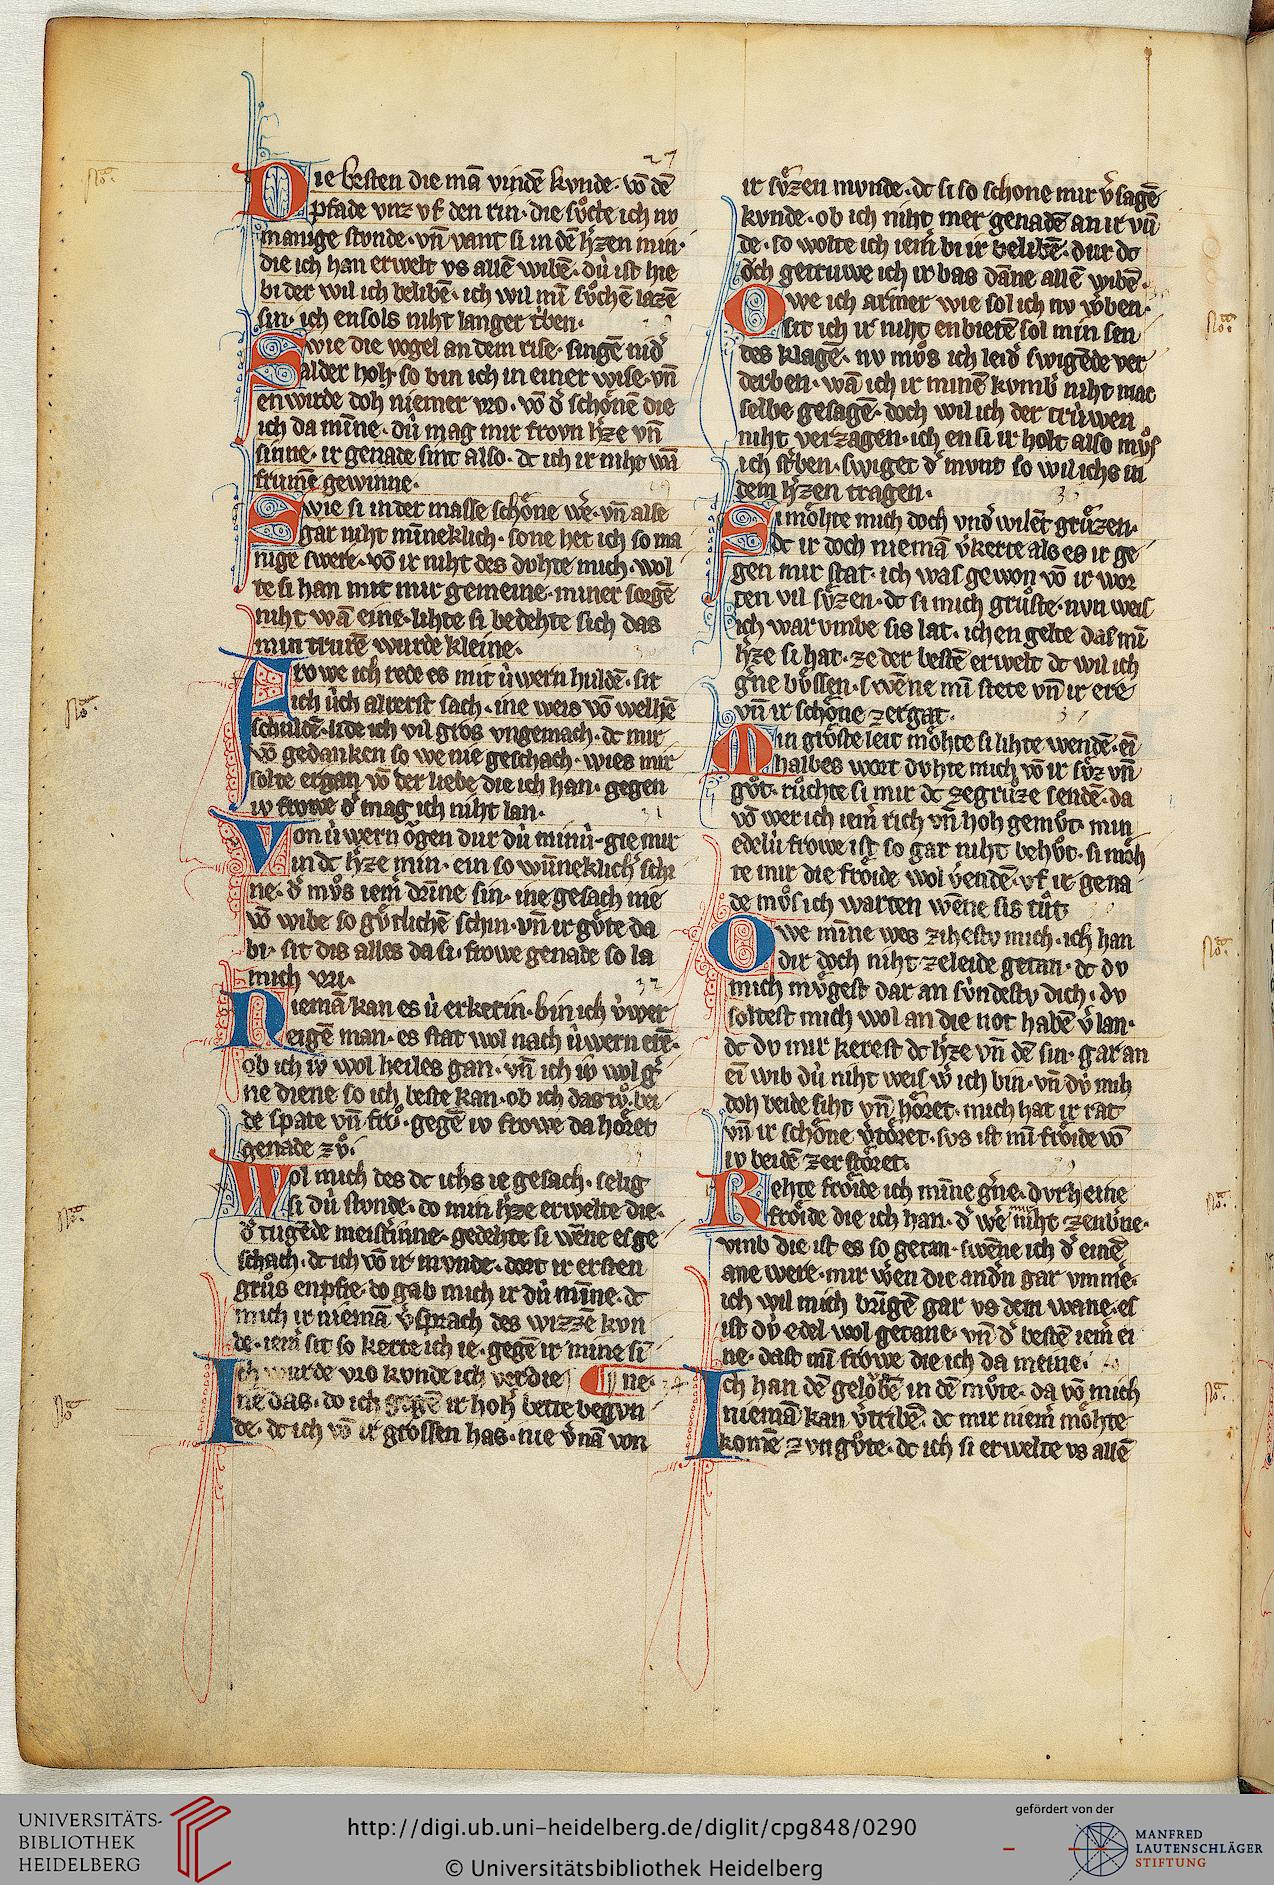 27
Die besten die mā vindē kvnde · vō dē
pfade vnz vf den rin · die sv̊chte ich nv
manige stvnde · vn̄ vant si in dē h̓zen min ·
die ich han erwelt vs allē wibē · dú ist hie
bi der wil ich belibē · ich wil mı̄ sv̊chē lazē
sin · ich ensols niht langer t'ben ·
Swie die vogel an dem rise · singē nid̓
alder hoh · so bin ich in einer wise · vn̄
enwirde doh niemer vro · vō d̓ schönē die
ich da mı̄ne · dú mag mir frovn h̓ze vn̄
sinne · ir genade sint also · dc ich ir niht wā
frumē gewinne ·
Swie si in der masse schöne we̓ · vn̄ alse
gar niht mı̄neklich · sone het ich so ma
nige swere · vō ir niht des dvhte mich · wol
te si han mit mir gemeine · miner sorgē
niht wā eine · lihte si bedehte sich das
min trurē wurde kleine ·
Frowe ich rede es mit úwern huldē · sit
ich úch alrerst sach · ine weis vō welhē
schuldē · lide ich vil gros vngemach · dc mir
vō gedanken so we nie geschach · wies mir
solte ergan vō der liebe die ich han · gegen
iv frowe d̓ mag ich niht lan ·
31
Von úwern ögen dur dú minú · gie mir
in dc h̓ze min · ein so wn̄neklich̓ schi
ne · d̓ mv̊s iem̓ drı̄ne sin · ine gesach nie
vō wibe so gv̊tlichē schin · vn̄ ir gv̊te da
bi · sit dis alles da si · frowe genade so la
mich vri ·
32
Niemā kan es ú erkerin · bin ich úwer
eigē man · es stat wol nach úwern erē ·
ob ich iv wol heiles gan · vn̄ ich iv wol g̓
ne diene so ich beste kan · ob ich das tv̊ · bei
de spate vn̄ frů · gegē iv frowe da höret
genade zv̊ ·
33
Wol mich des dc ichs ie gesach · selig
si dú stvnde · do min h̓ze erwelte die ·
d̓ tugēde meist̓inne · gedehte si wēne es ge
schach · dc ich vō ir mvnde · dort ir ersten
grůs enpfie · do gab mich ir dú mı̄ne · dc
mich ir niemā v̓sprach des wizzē kvn
de · iem̓ sit so kerte ich ie · gegē ir mine si
Ich wurde vro kvnde ich verdie ne · 34
nē das · do ich gegē ir hoh̓ bette begvn
de · dc ich vō ir grossen has · nie v̓nā von
ir sv̊zen mvnde · dc si so schone mir v̓sagē
kvnde · ob ich niht mer genadē an ir vn̄
de · so wolte ich iem̓ bi ir belibē · dur dc
öch getruwe ich ir bas dāne allē wibē ·
Owe ich armer wie sol ich nv w̓ben ·
sit ich ir niht enbietē sol min sen
des klagē · nv mv̊s ich leid̓ swigēde ver
derben · wā ich ir minē kvmb̓ niht mac
selbe gesagē · doch wil ich der trúwen
niht verzagen · ich en si ir holt also mv̊s
ich st̓ben · swiget d̓ mvnt so wil ichs in
dem h̓zen tragen ·
36
Si möhte mich doch vnd̓wilēt grůzen ·
dc ir doch niemā v̓kerte als es ir ge
gen mir stat · ich was gewon vō ir wor
ten vil sv̊zen · dc si mich grůste · nvn weis
ich war vmbe sis lat · ich en gelte das mı̄
h̓ze si hat · ze der bestē erwelt dc wil ich
g̓ne bv̊ssen · swēne mı̄ stete vn̄ ir ere
vn̄ ir schöne zergat ·
37
Min gröste leit möhte si lihte wendē · ei
halbes wort dvhte mich vō ir sv̊z vn̄
gůt · růchte si mir dc ze grůze sendē · da
vō wer ich iem̓ rich vn̄ hoh gemv̊t · min
edelú frowe ist so gar niht behv̊t · si möh
te mir die fröide wol v̓endē · vf ir gena
de mv̊s ich warten wēne sis tůt
Owe mı̄ne wes zihestv mich · ich han
dir doch niht ze leide getan · dc dv
mich mv̊gest dar an sv̓ndestv dich · dv
soltest mich wol an die not habē v̓lan ·
dc dv mir kerest dc h̓ze vn̄ dē sin · gar an
ei wib dú niht weis w̓ ich bin · vn̄ dv̓ mih
doh beide siht vn̄ höret · mich hat ir rat
vn̄ ir schöne v̓töret · svs ist mı̄ fröide vō
iv beidē zerstöret ·
39
Rehte fröide ich mı̄ne g̓ne · dvrh eine
fröide die ich han · d̓ we̓ mir niht zenb̓ne ·
vmb die ist es so getan · swēne ich d̓ einē
ane were · mir w̓en die and̓n gar vnme̓ ·
ich wil mich brı̄gē gar vs dem wane · es
ist dv̓ edel wol getane · vn̄ d̓ bestē iem̓ ei
ne · dast mı̄ frowe die ich da meine ·
Ich han dē gelöbē in dē mv̊te · da vō mich
niemā kan v̓tribē · dc mir niem̓ möhte
komē zvn gv̊te · dc ich si erwelte vs allē
UNIVERSITÄTS-
BIBLIOTHEK
HEIDELBERG
http://digi.ub.uni-heidelberg.de/diglit/cpg848/0290
© Universitätsbibliothek Heidelberg
gefördert von der
MANFRED
LAUTENSCHLÄGER
STIFTUNG